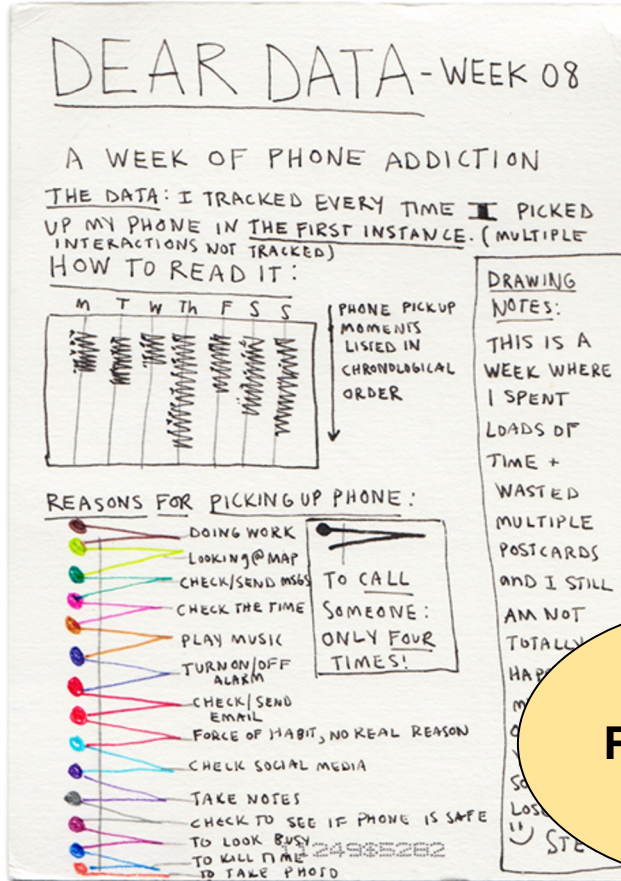 DEAR DATA - WEEK 08
A WEEK OF PHONE ADDICTION
THE DATA: I TRACKED EVERY TIME I PICKED
UP MY PHONE IN THE FIRST INSTANCE. (MULTIPLE
INTERACTIONS NOT TRACKED)
HOW TO READ IT:
M T W Th F S S
PHONE PICKUP
MOMENTS
LISTED IN
CHRONOLOGICAL
ORDER
REASONS FOR PICKING UP PHONE:
DOING WORK
LOOKING@MAP
CHECK/SEND MSGS
CHECK THE TIME
PLAY MUSIC
TURN ON/OFF
ALARM
CHECK/SEND
EMAIL
FORCE OF HABIT, NO REAL REASON
CHECK SOCIAL MEDIA
TAKE NOTES
CHECK TO SEE IF PHONE IS SAFE
TO LOOK BUSY
TO KILL TIME
TO TAKE PHOTO
TO CALL
SOMEONE:
ONLY FOUR
TIMES!
DRAWING
NOTES:
THIS IS A
WEEK WHERE
I SPENT
LOADS OF
TIME +
WASTED
MULTIPLE
POSTCARDS
AND I STILL
AM NOT
TOTALLY